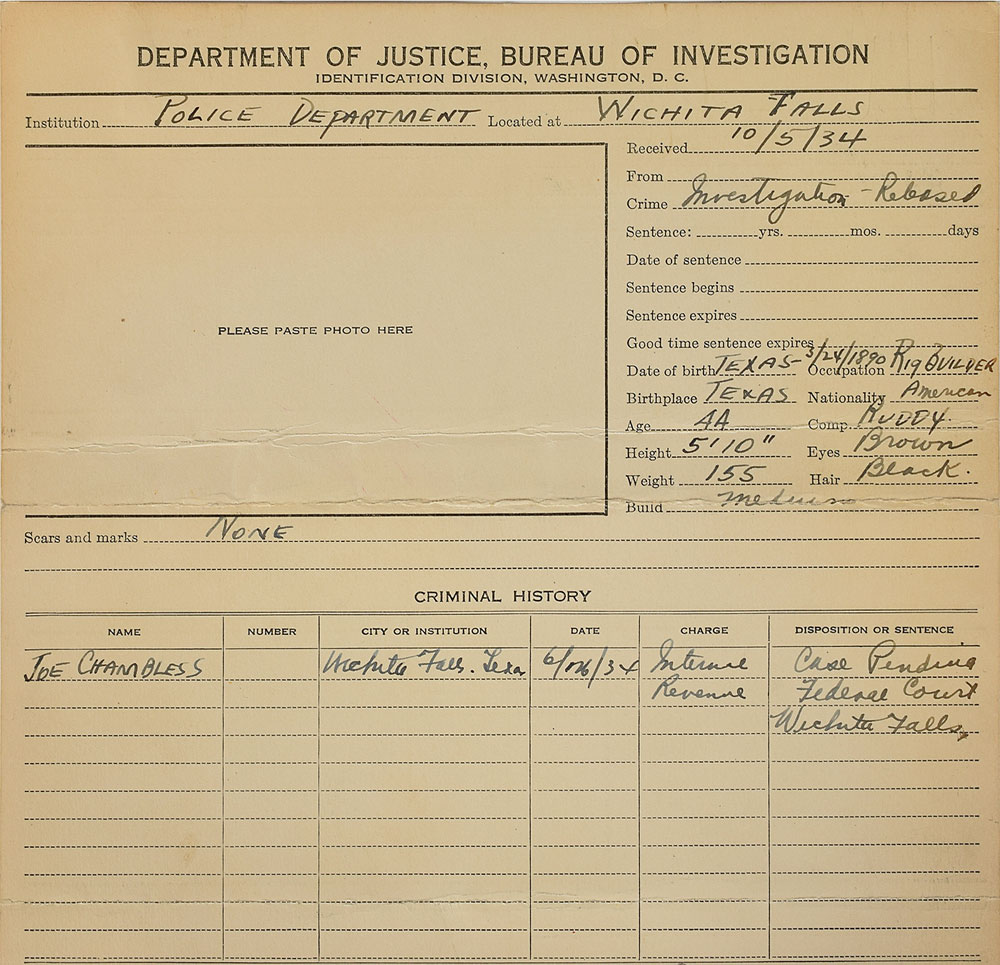 DEPARTMENT OF JUSTICE, BUREAU OF INVESTIGATION
IDENTIFICATION DIVISION, WASHINGTON, D. C.
Institution POLICE DEPARTMENT Located at WICHITA FALLS
Received 10/5/34
From
Crime Investigation - Released
Sentence: yrs. mos. days
Date of sentence
Sentence begins
Sentence expires
Good time sentence expires
Date of birth TEXAS- 3/24/1890 Occupation RIG BUILDER
Birthplace TEXAS Nationality American
Age 44 Comp. RUDDY.
Height 5'10" Eyes Brown
Weight 155 Hair Black.
Build medium
PLEASE PASTE PHOTO HERE
Scars and marks NONE
CRIMINAL HISTORY
NAME NUMBER CITY OR INSTITUTION DATE CHARGE DISPOSITION OR SENTENCE
JOE CHAMBLESS Wichita Falls. Texas Interne Case Pending
Revenue Federal Court
Wichita Falls,